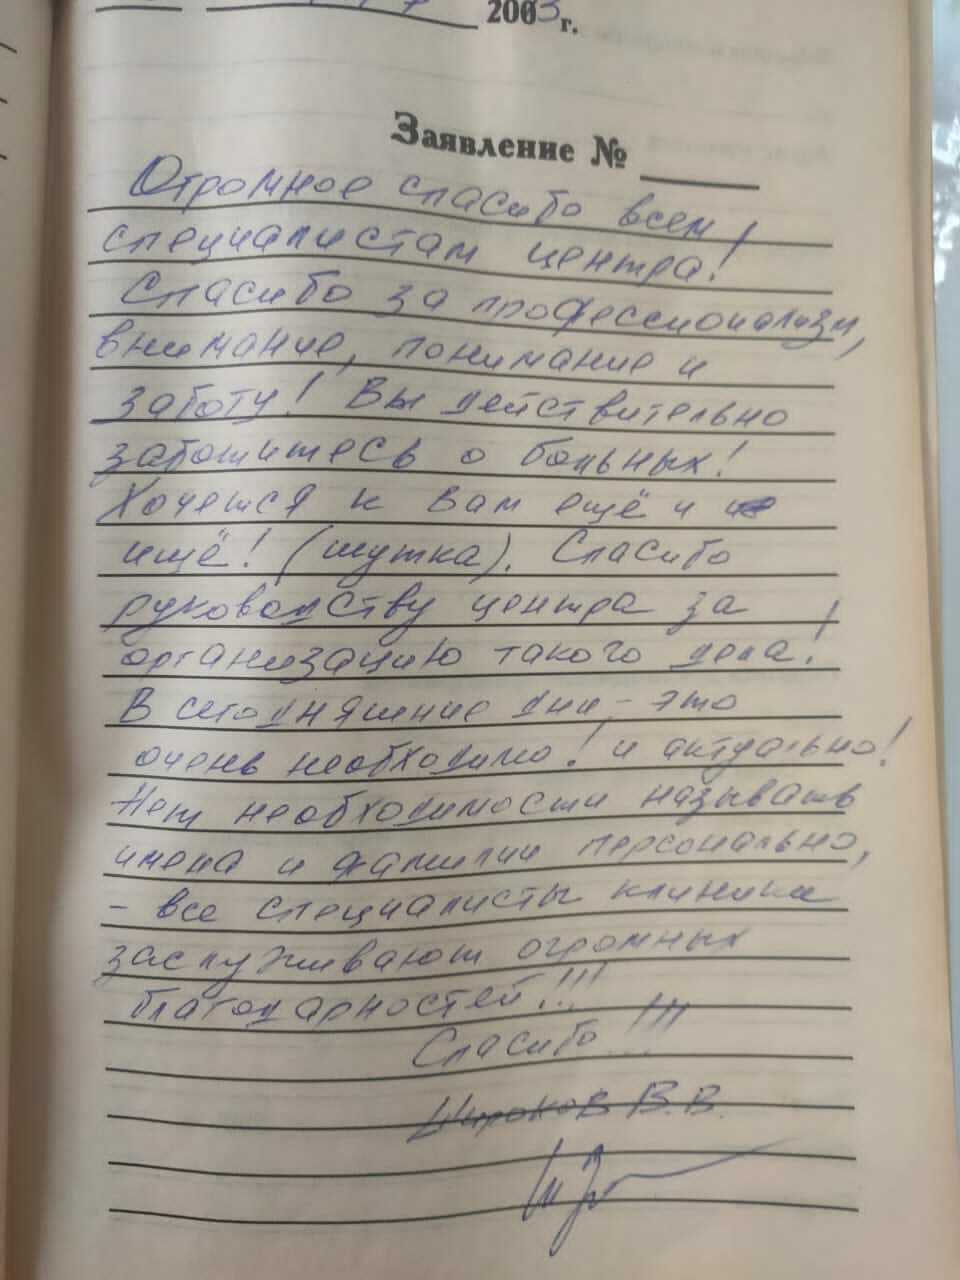 2003 г.
Заявление №
Огромное спасибо всем
специалистам центра!
Спасибо за профессионализм,
внимание, понимание и
заботу! Вы действительно
заботитесь о больных!
Хочется к Вам ещё и
ищё! (шутка). Спасибо
руководству центра за
организацию такого дела!
В сегодняшние дни - это
очень необходимо! и актуально!
Нет необходимости называть
имена и фамилии персонально,
- все специалисты клиники
заслуживают огромных
благодарностей!!!
Спасибо!!!
Широков В.В.